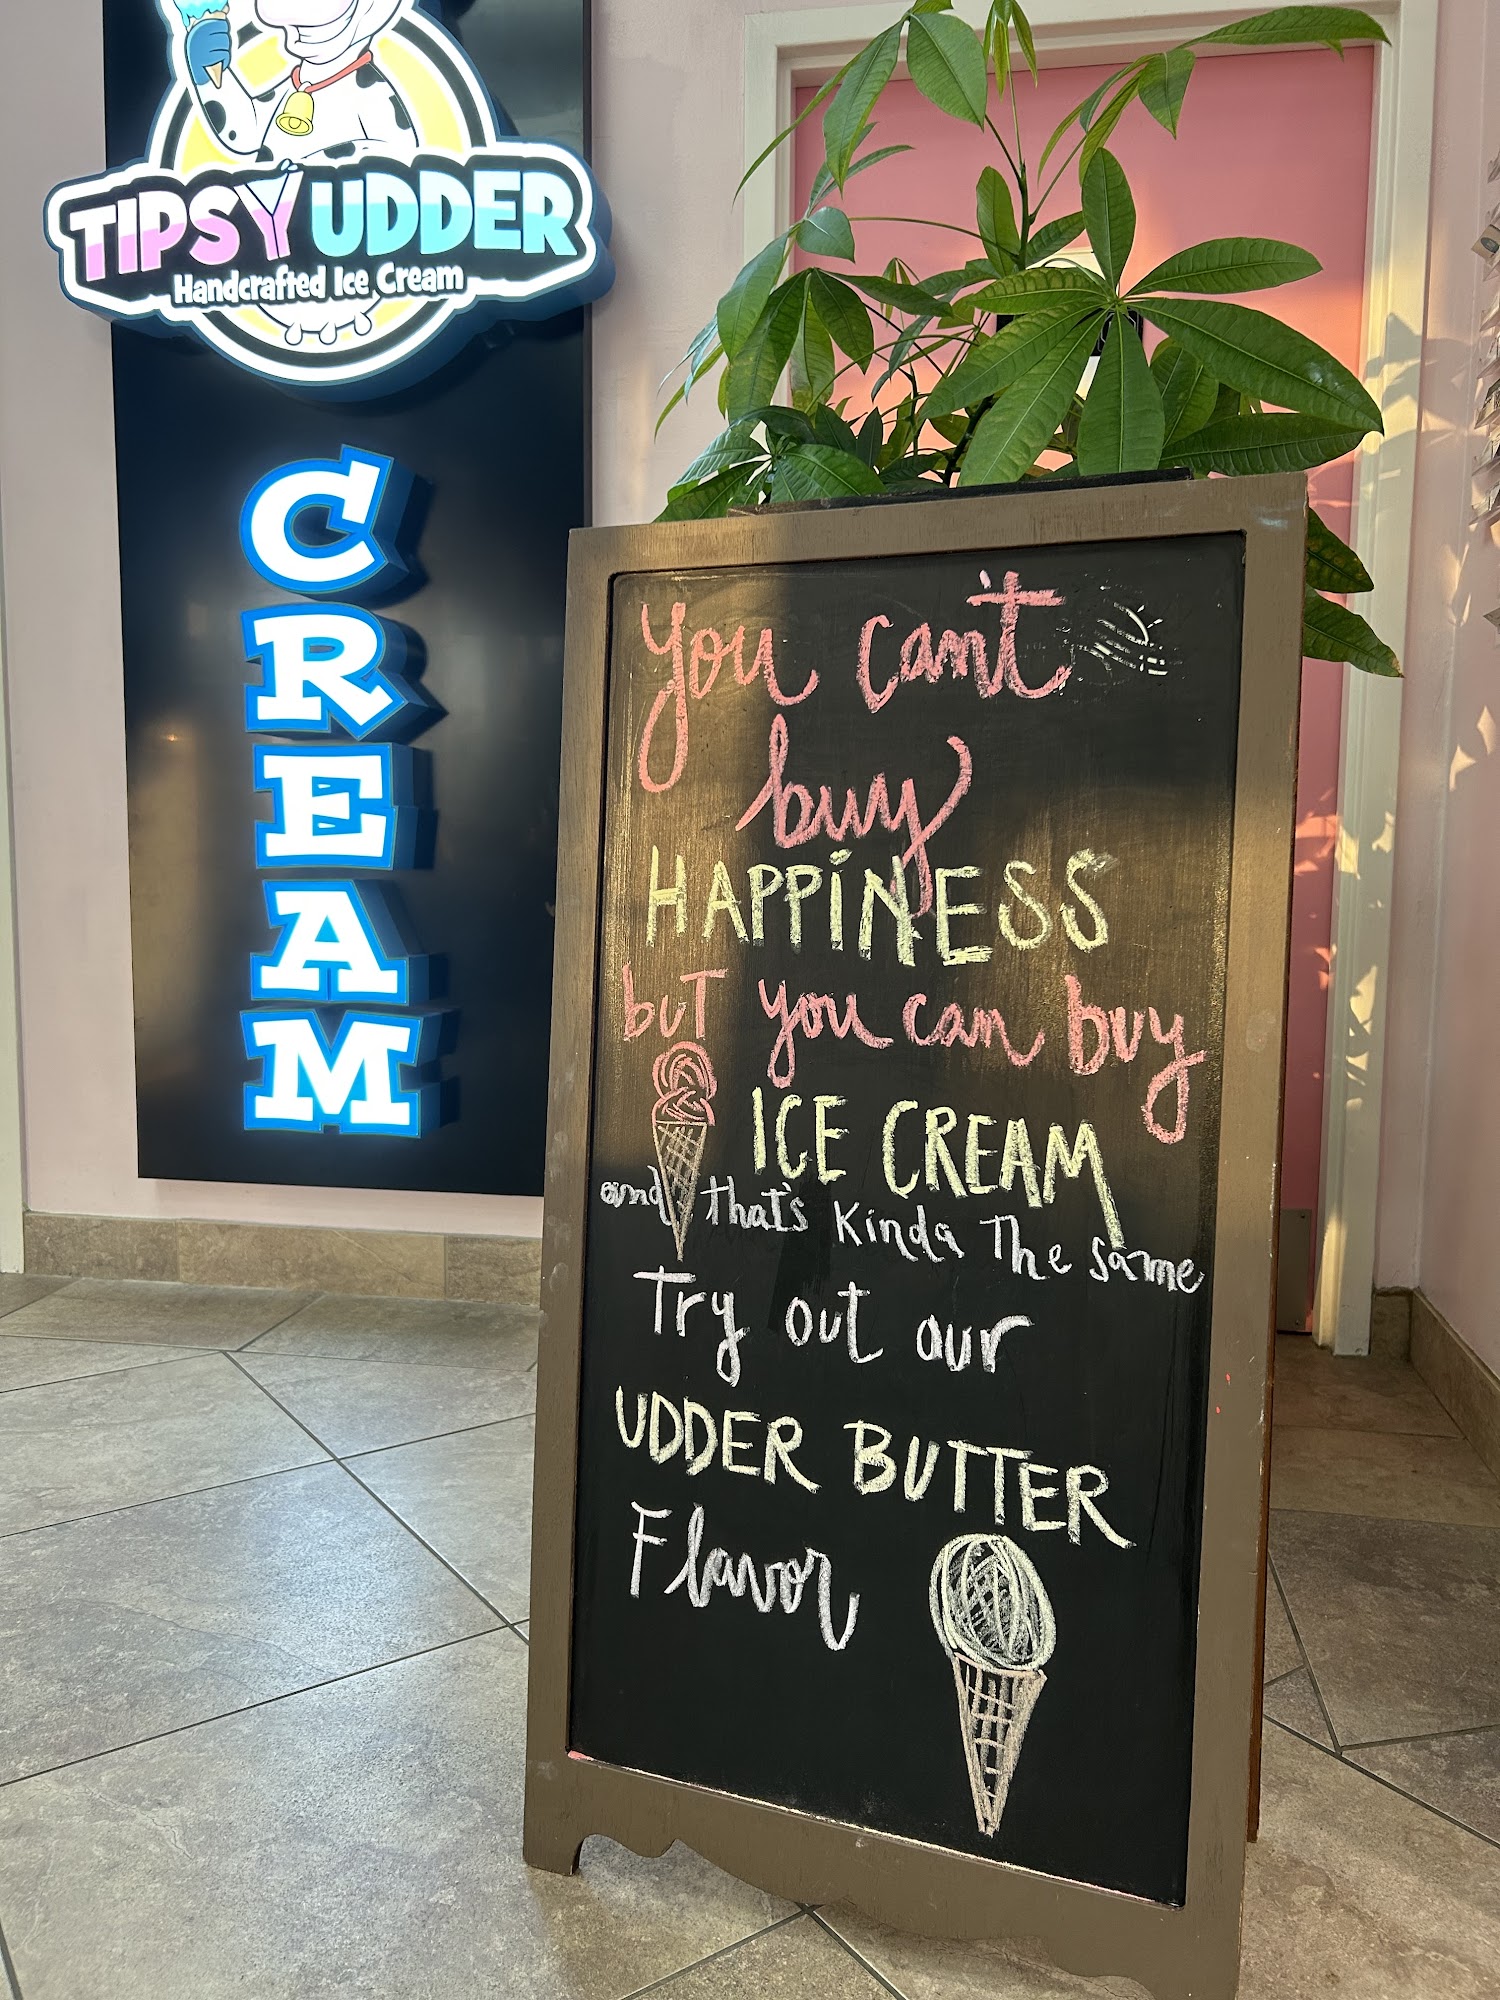 TIPSY UDDER
Handcrafted Ice Cream
CREAM
you can't
buy
HAPPiNESS
buT you can buy
ICE CREAM
and that's kinda The same
Try out our
UDDER BUTTER
Flavor